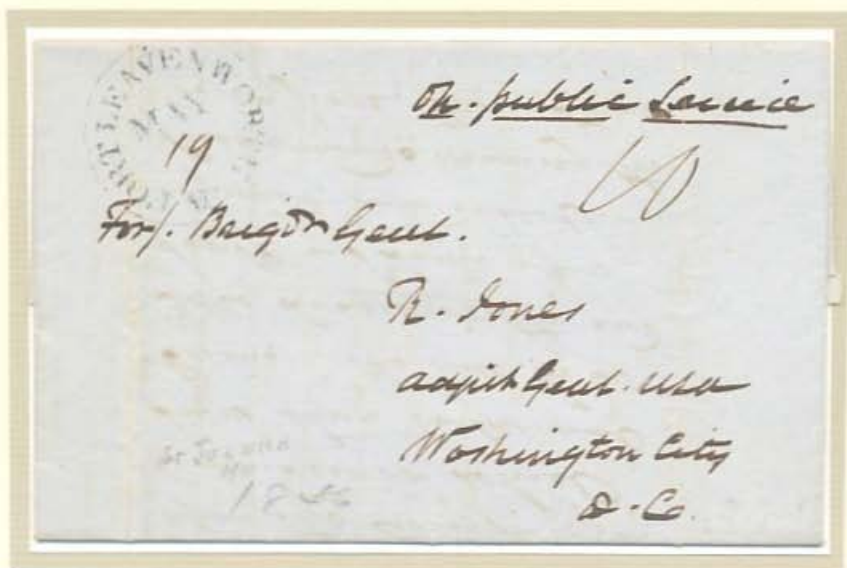 FORT LEAVENWORTH
MAY
19
On. public Service
10
For/. Brigdr Genl.
R. Jones
adjut Genl. USA
Washington City
D. C.
St Joseph
Mo
18